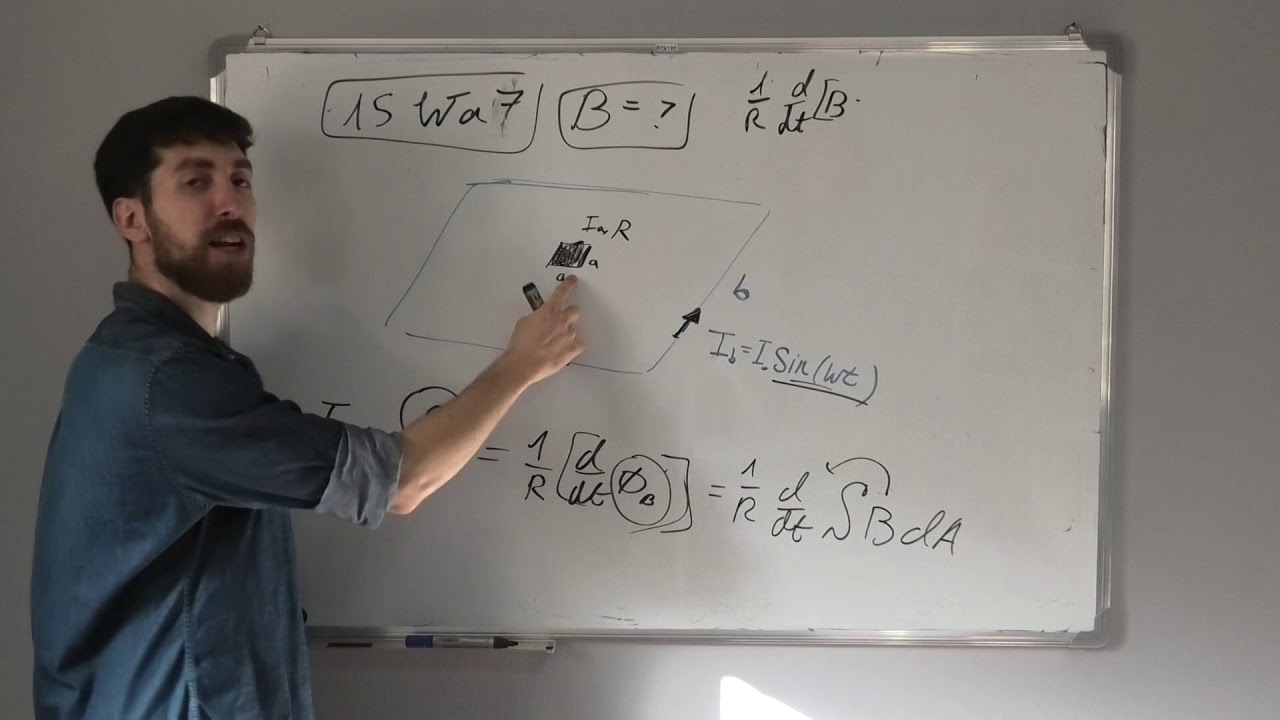 15 Wa7 B = ? 1/R d/dt [B·
Ia, R
a
a
b
I_b = I₀ Sin(wt)
I = 1/R [d/dt Ø_B] = 1/R d/dt ∫ B dA